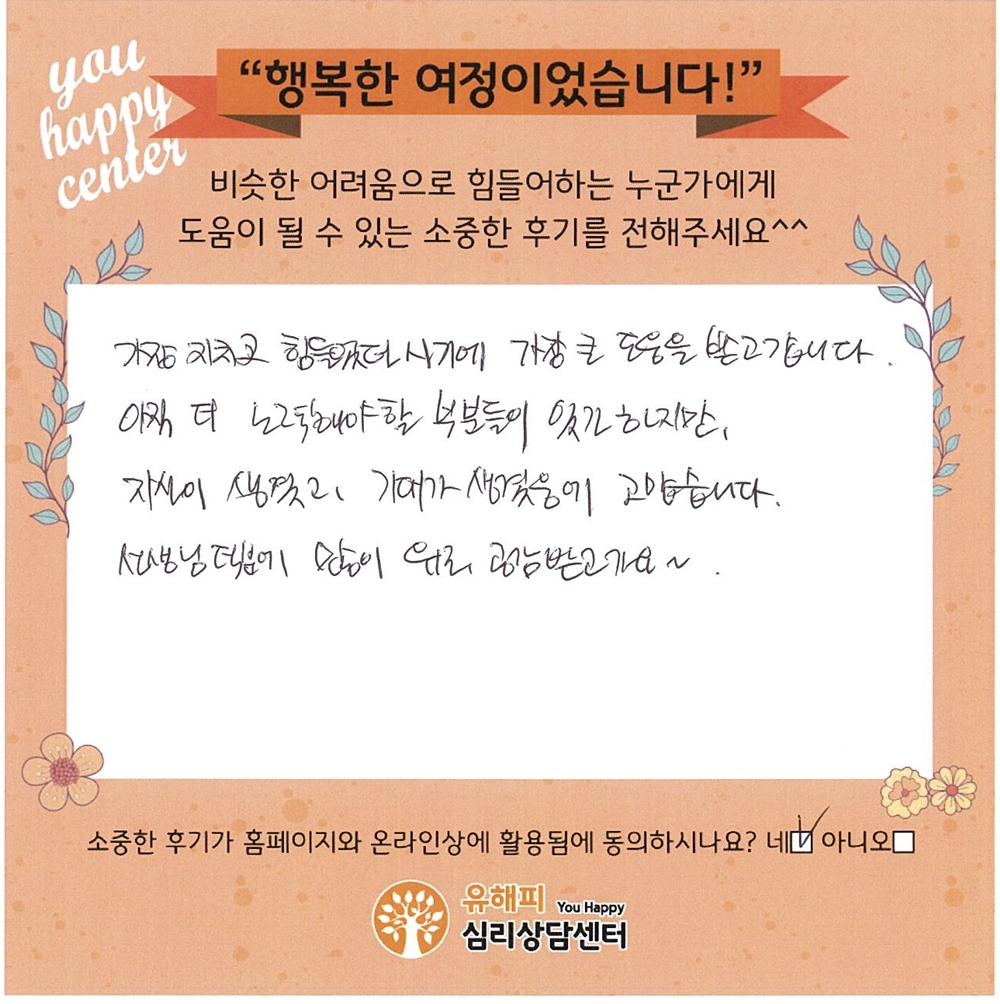 you
happy
center
“행복한 여정이었습니다!”
비슷한 어려움으로 힘들어하는 누군가에게
도움이 될 수 있는 소중한 후기를 전해주세요^^
가장 지치고 힘들었던 시기에 가장 큰 도움을 받고갑니다.
아직 더 노력해야할 부분들이 있긴 하지만,
자신이 생겼고, 기대가 생겼음에 고맙습니다.
선생님덕분에 많이 위로, 공감받고가요~.
소중한 후기가 홈페이지와 온라인상에 활용됨에 동의하시나요? 네 아니오
유해피 You Happy
심리상담센터